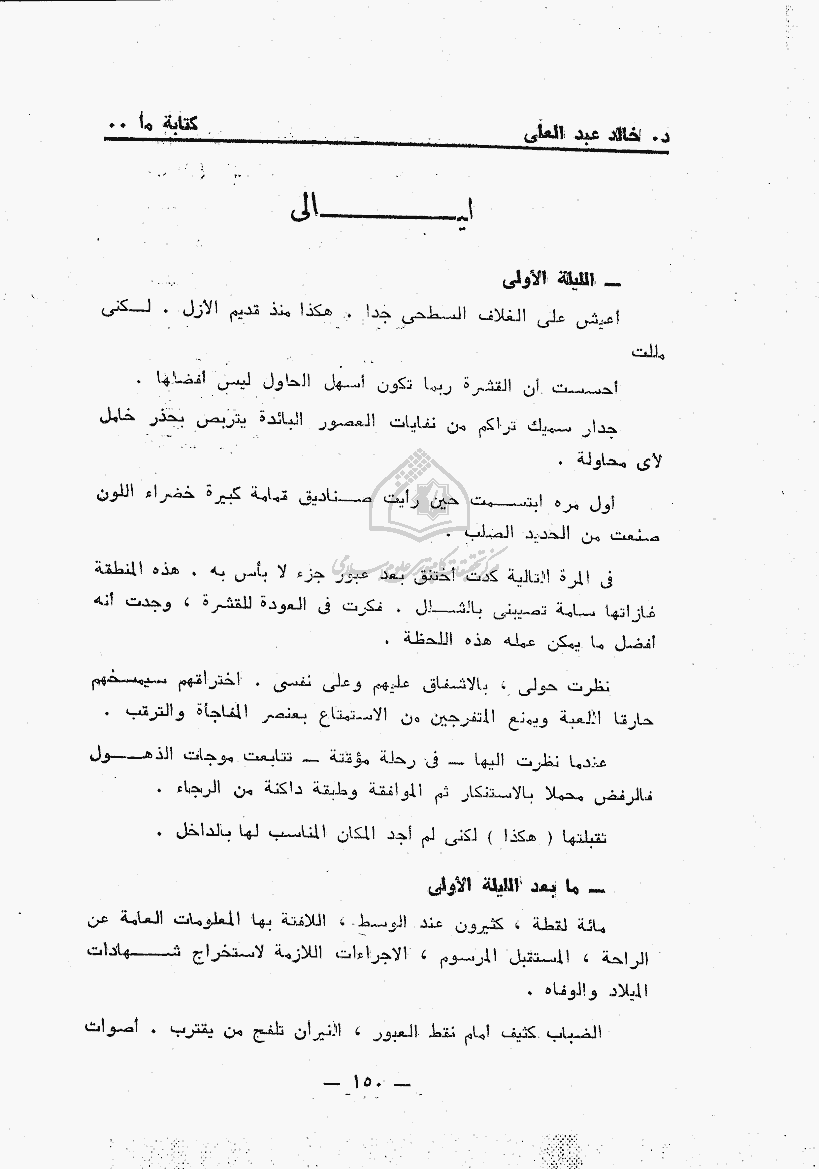 د. خالد عبد العلى
كتابة ما ..
ليـــــــــالى
ــ الليلة الأولى
أعيش على الغلاف السطحى جدا . هكذا منذ قديم الأزل . لــكنى
مللت
أحسست أن القشرة ربما تكون أسهل الحلول ليس أفضلها .
جدار سميك تراكم من نفايات العصور البائدة يتربص بحذر خامل
لأى محاولة .
أول مره ابتســمت حين رأيت صــناديق قمامة كبيرة خضراء اللون
صنعت من الحديد الصلب .
فى المرة التالية كدت أختنق بعد عبور جزء لا بأس به . هذه المنطقة
غازاتها سامة تصيبنى بالشــلل . فكرت فى العودة للقشرة ، وجدت أنه
أفضل ما يمكن عمله هذه اللحظة .
نظرت حولى ، بالاشفاق عليهم وعلى نفسى . اختراقهم سيمسخهم
حارقا اللعبة ويمنع المتفرجين من الاستمتاع بعنصر المفاجأة والترقب .
عندما نظرت اليها ــ فى رحلة مؤقتة ــ تتابعت موجات الذهــول
فالرفض محملا بالاستنكار ثم الموافقة وطبقة داكنة من الرجاء .
تقبلتها ( هكذا ) لكنى لم أجد المكان المناسب لها بالداخل .
ــ ما بعد الليلة الأولى
مائة لقطة ، كثيرون عند الوسط ، اللافتة بها المعلومات العامة عن
الراحة ، المستقبل المرسوم ، الاجراءات اللازمة لاستخراج شــهادات
الميلاد والوفاه .
الضباب كثيف أمام نقط العبور ، النيران تلفح من يقترب . أصوات
ــ ١٥٠ ــ